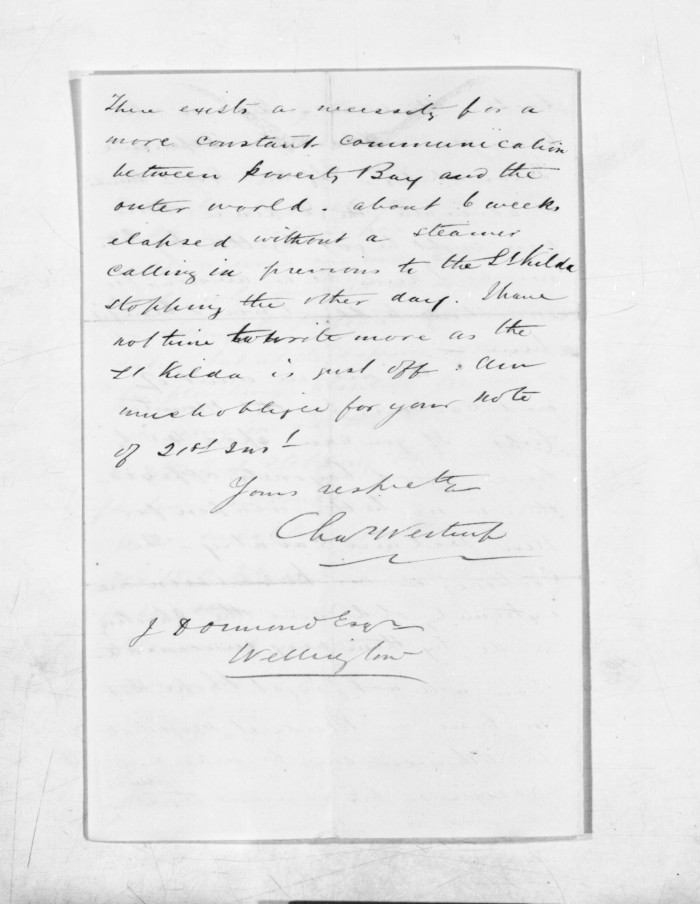 There exists a necessity for a
more constant communication
between Poverty Bay and the
outer world. about 6 weeks
elapsed without a steamer
calling in previous to the St Kilda
stopping the other day. I have
not time to write more as the
St Kilda is just off. Am
much oblige for your note
of 21st Inst
Yours respectly
Chas Westrup
J Dormond Esqr
Wellington